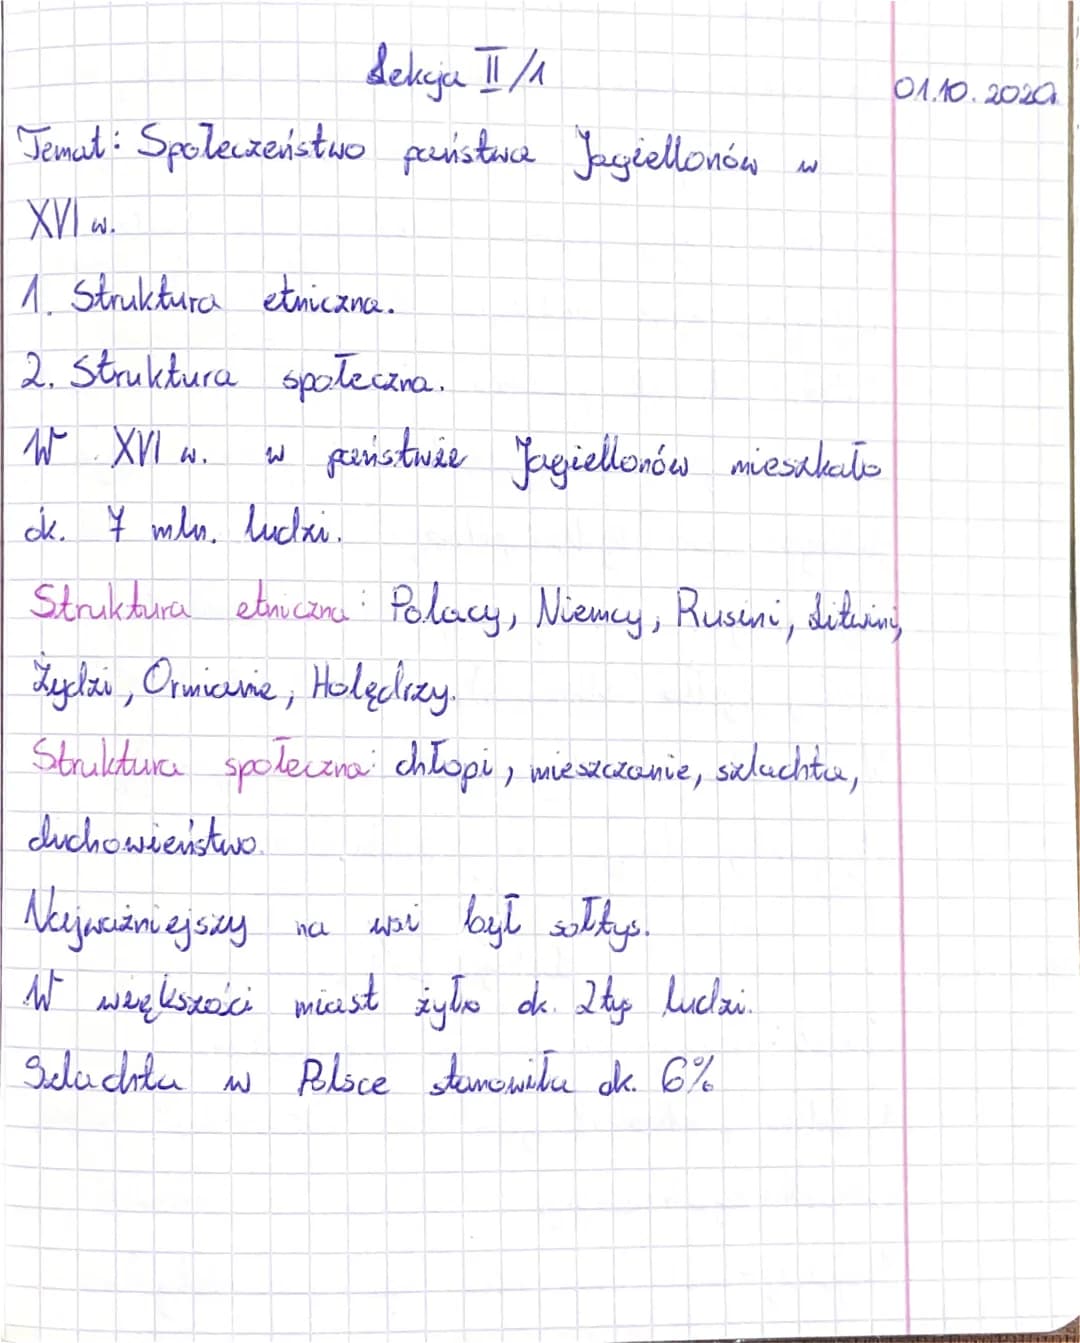 Lekcja II/1
01.10.2020r.
Temat: Społeczeństwo państwa Jagiellonów w
XVI w.
1. Struktura etniczna.
2. Struktura społeczna.
W XVI w. w państwie Jagiellonów mieszkało
ok. 7 mln. ludzi.
Struktura etniczna: Polacy, Niemcy, Rusini, Litwini,
Żydzi, Ormianie, Holędrzy.
Struktura społeczna: chłopi, mieszczanie, szlachta,
duchowieństwo.
Najważniejszy na wsi był sołtys.
W większości miast żyło ok. 2 tyś ludzi.
Szlachta w Polsce stanowiła ok. 6%